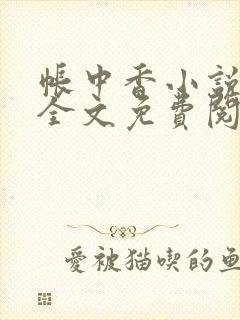 帳中香小說
全文免費閱
愛被猫喫的魚